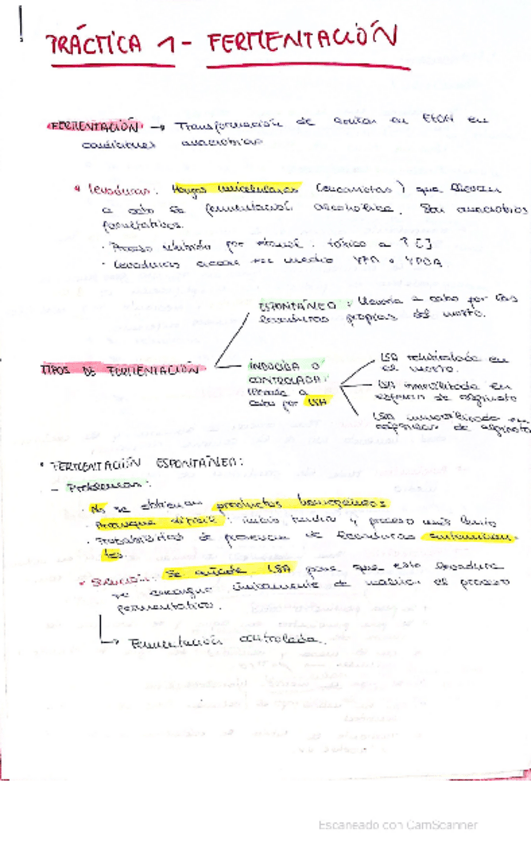 PRÁCTICA 1 - FERMENTACIÓN
FERMENTACIÓN → Transformación de azúcar en EtOH en
condiciones anaerobias
Levaduras: Hongos unicelulares (eucariotas) que llevan
a cabo la fermentación alcohólica. Son anaerobios
facultativos.
· Proceso inhibido por etanol: tóxico a ↑ [ ]
· Levaduras crecen en medio YPD o YPDA
ESPONTÁNEO: llevada a cabo por las
levaduras propias del mosto.
TIPOS DE FERMENTACIÓN
INDUCIDA O
CONTROLADA:
llevada a
cabo por LSA
LSA rehidratada en
el mosto.
LSA inmovilizada en
esferas de alginato
LSA inmovilizada en
de alginato
· FERMENTACIÓN ESPONTÁNEA:
- Problemas:
· No se obtienen productos homogéneos
· Arranque difícil: inicio tardío y proceso más lento
· Probabilidad de presencia de levaduras contaminan-
tes.
Solución: Se añade LSA para que esta levadura
se encargue únicamente de realizar el proceso
fermentativo.
→ Fermentación controlada.
Escaneado con CamScanner